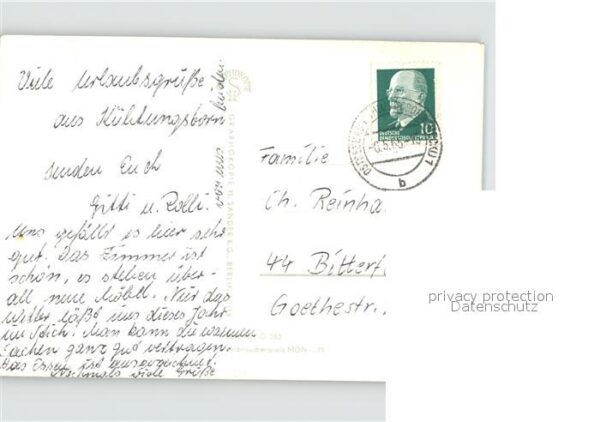 Viele Urlaubsgrüße
aus Kühlungsborn
senden Euch
Gitti u. Rolli.
Uns gefällt es hier sehr
gut. Das Zimmer ist
schön, es stehen über-
all neue Möbel. Nur das
Wetter läßt uns dieses Jahr
im Stich. Man kann die warmen
Sachen ganz gut vertragen.
Das Essen ist ausgezeichnet.
Nochmals viele Grüße
GRAPHOKOPIE H. SANDER KG., BERLIN
10
DEUTSCHE
DEMOKRATISCHE REPUBLIK
OSTSEEBAD
b
Familie
Ch. Reinha
44 Bitterf
Goethestr.
privacy protection
Datenschutz